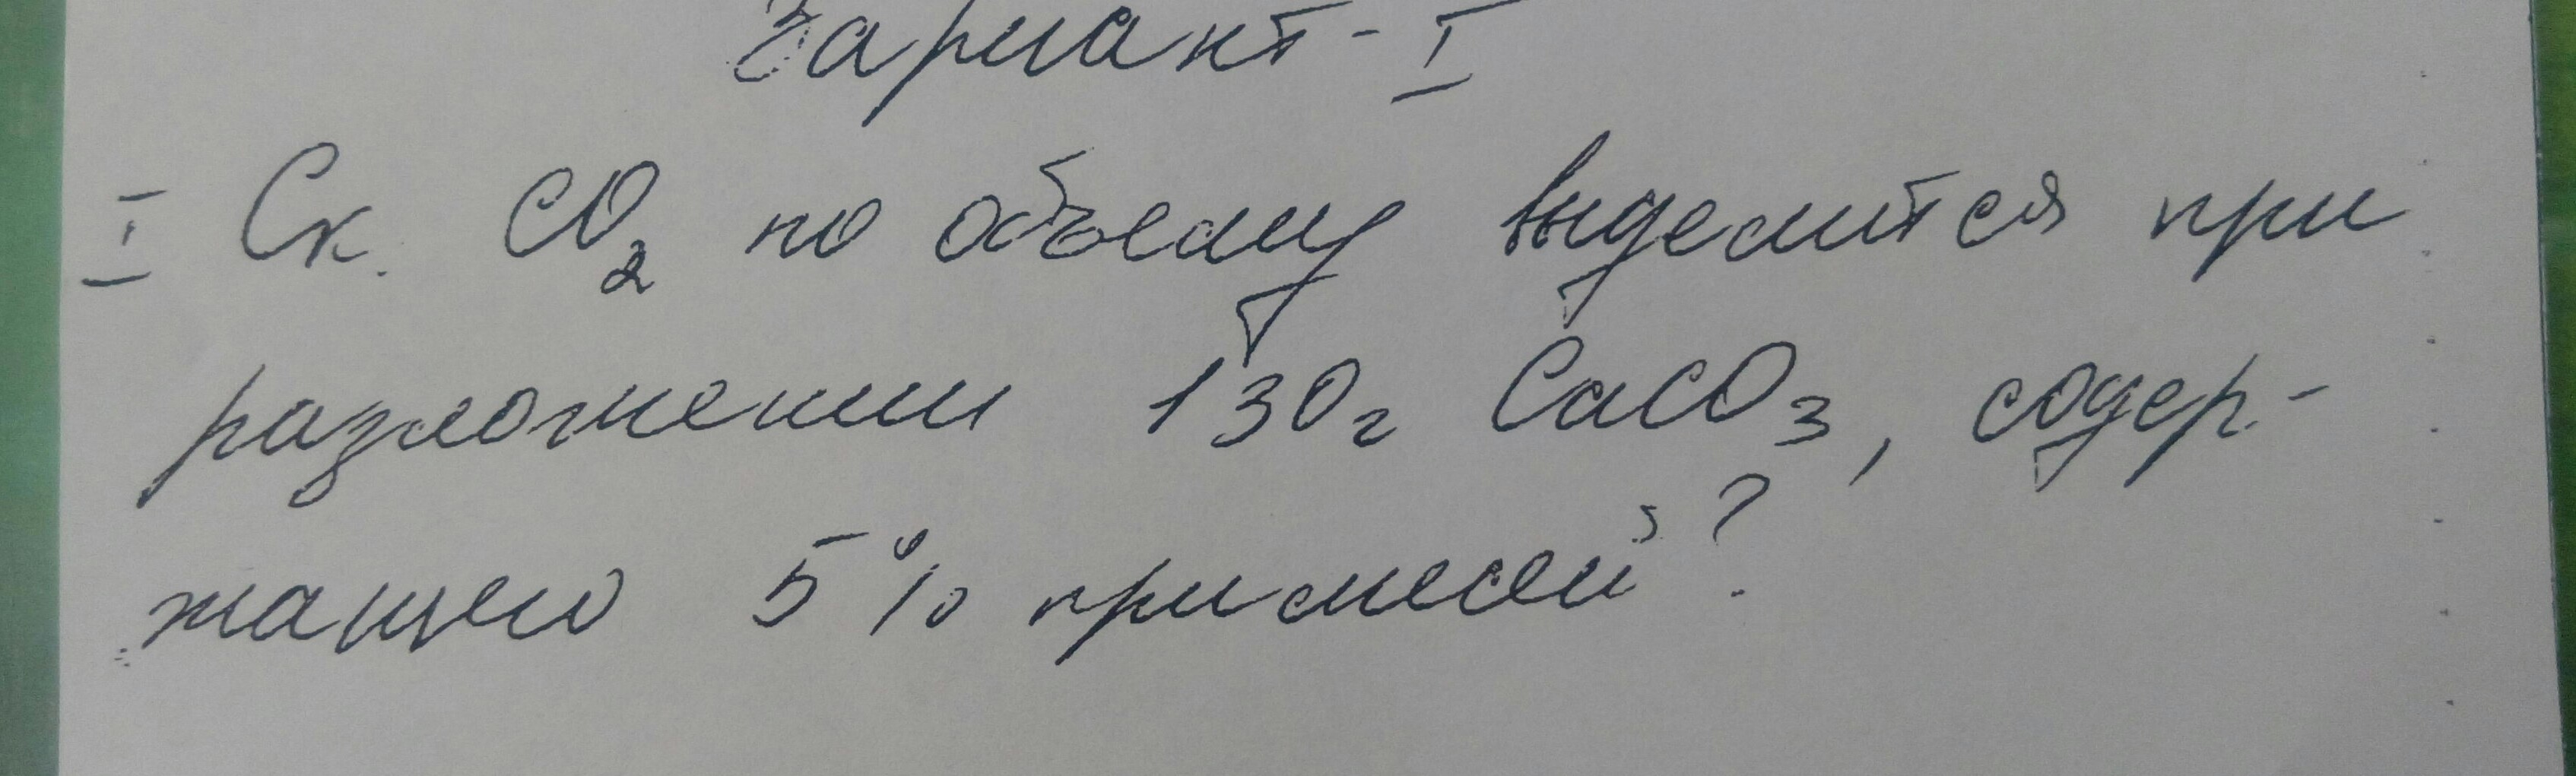 Вариант - I
I Ск. CO2 по объему выделится при
разложении 130г CaCO3, содер-
жащего 5% примесей?